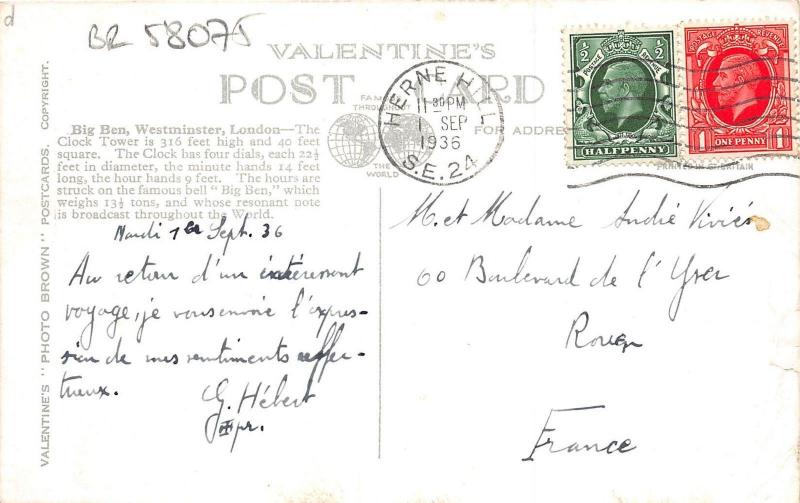 d
BR 58075
VALENTINE'S
POST CARD
FAMOUS
THROUGHOUT
THE
WORLD
FOR ADDRESS
PRINTED IN GT BRITAIN
VALENTINE'S "PHOTO BROWN" POSTCARDS. COPYRIGHT.
Big Ben, Westminster, London—The
Clock Tower is 316 feet high and 40 feet
square. The Clock has four dials, each 22½
feet in diameter, the minute hands 14 feet
long, the hour hands 9 feet. The hours are
struck on the famous bell "Big Ben," which
weighs 13½ tons, and whose resonant note
is broadcast throughout the World.
HERNE HILL
11 30PM
1 SEP
1936
S.E.24
½ ½
POSTAGE REVENUE
HALFPENNY
POSTAGE REVENUE
1 ONE PENNY 1
Mardi 1er Sept. 36
Au retour d'un intéressant
voyage, je vous envoie l'expres-
sion de mes sentiments affec-
tueux.
G. Hébert
M. et Madame André Viviés
60 Boulevard de l'Yser
Rouen
France